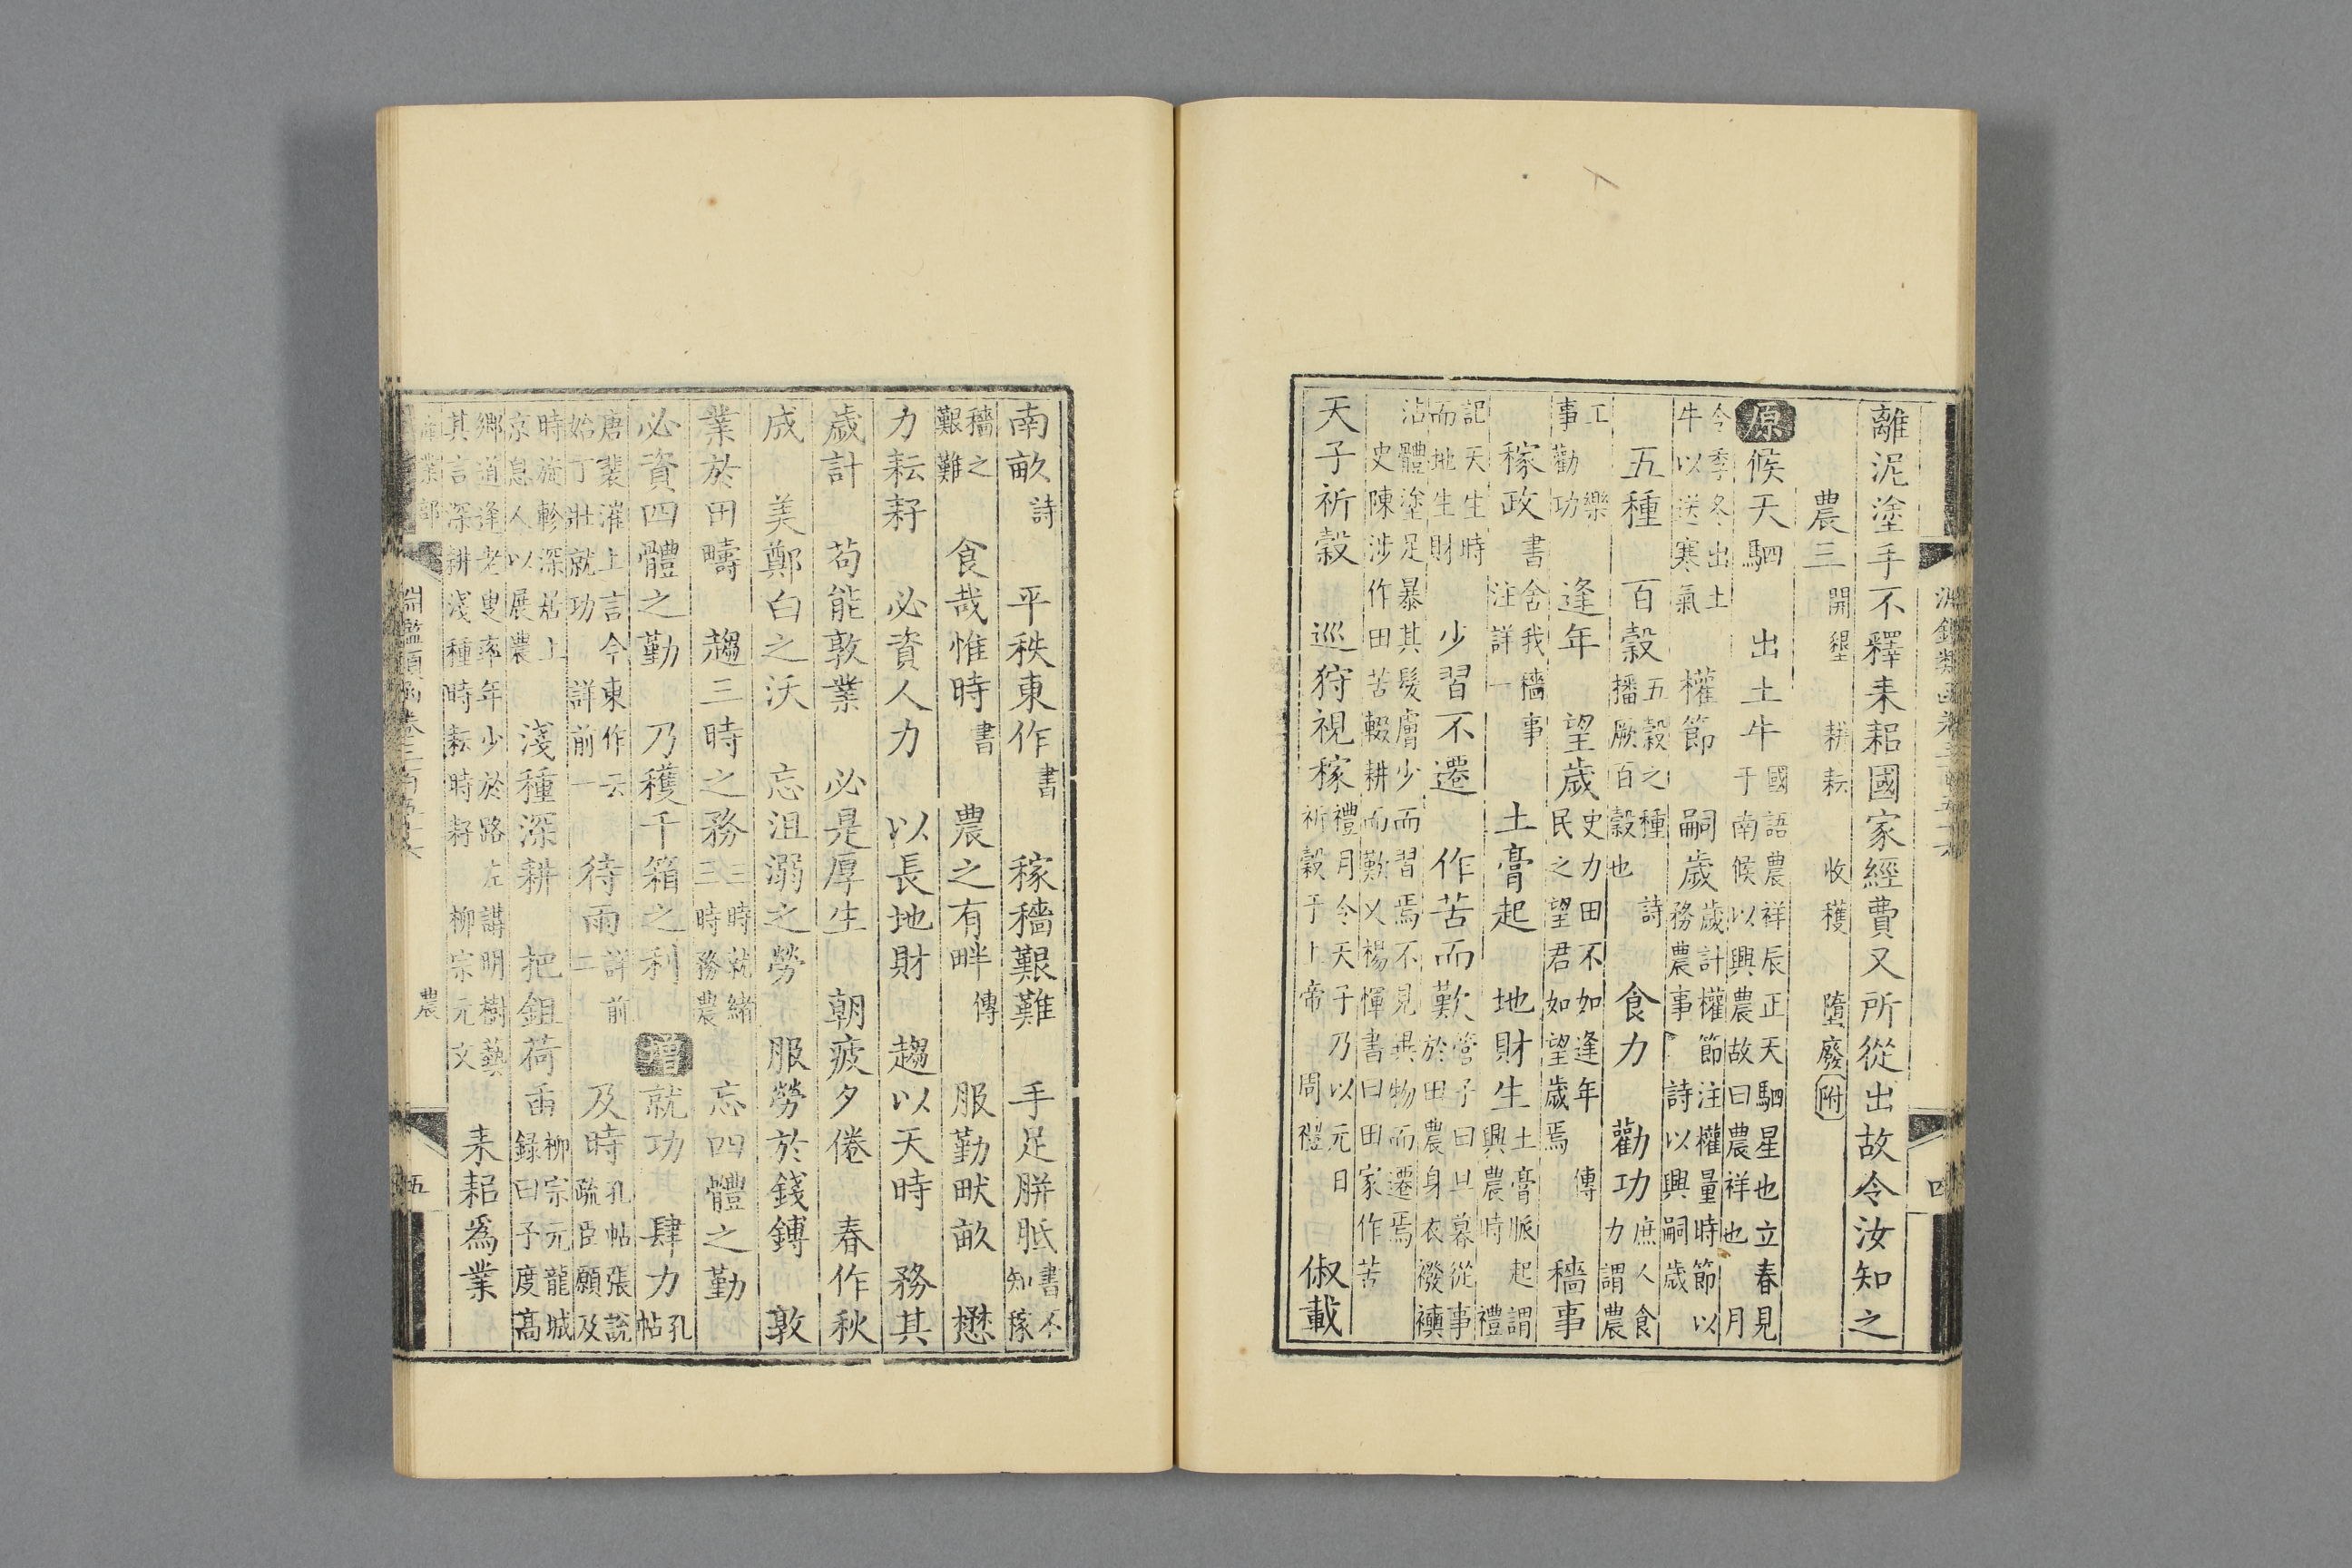 離泥塗手不釋耒耜國家經費又所從出故令汝知之
農三 開墾 耕耘 收穫 墮廢附
原候天駟 出土牛 國語農祥辰正天駟星也立春見于南候以興農故曰農祥也 月
令季冬出土牛以送寒氣 權節 嗣歲 歲計權節注權量時節以務農事 詩以興嗣歲
五種 百穀 五穀之種播厥百穀也 詩 食力 勸功 庶人食力謂農
工事勸樂功 逢年 望歲 史力田不如逢年民之望君如望歲焉 傳 穡事
稼政 書舍我穡事注詳一 土膏起 地財生 土膏脈起謂興農時 禮
記天生時而地生財 少習不遷 作苦而歎 管子曰旦暮從事於田農身衣襏襫
沾體塗足暴其髮膚少而習焉不見異物而遷焉 史陳涉作田苦輟耕而歎又楊惲書曰田家作苦
天子祈穀 巡狩視稼 禮月令天子乃以元日祈穀于上帝 周禮 俶載
淵鑑類函卷三百五十六
四
南畝 詩 平秩東作 書 稼穡艱難 手足胼胝 書不知稼
穡之艱難 食哉惟時 書 農之有畔 傳 服勤畎畝 懋
力耘耔 必資人力 以長地財 趨以天時 務其
歲計 苟能敦業 必是厚生 朝疲夕倦 春作秋
成 美鄭白之沃 忘沮溺之勞 服勞於錢鎛 敦
業於田疇 趨三時之務 三時就緒三時務農 忘四體之勤
必資四體之勤 乃穫千箱之利 增就功 肆力 孔帖
唐裴漼上言今東作云始丁壯就功 詳前一 待雨 詳前二 及時 孔帖張說疏臣願及
時旋軫深居上京息人以展農 淺種深耕 把鉏荷臿 柳宗元龍城錄曰子度高
鄉道逢老叟率年少於路左講明樹藝其言深耕淺種時耘時耔 柳宗元文 耒耜爲業
淵鑑類函卷三百五十六
農
五